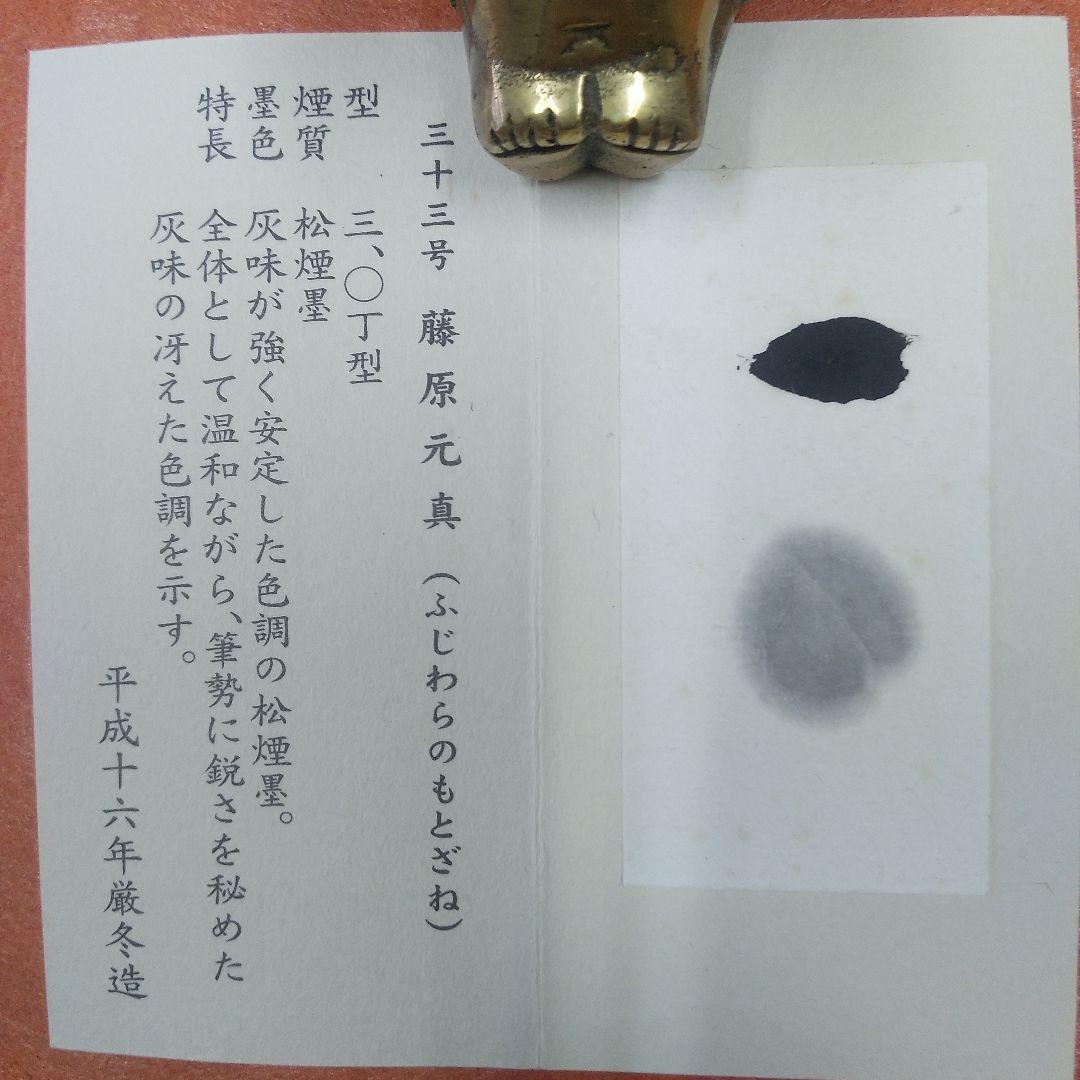 三十三号 藤原元真 (ふじわらのもとざね)
型 三、〇丁型
煙質 松煙墨
墨色 灰味が強く安定した色調の松煙墨。
特長 全体として温和ながら、筆勢に鋭さを秘めた
灰味の冴えた色調を示す。
平成十六年厳冬造